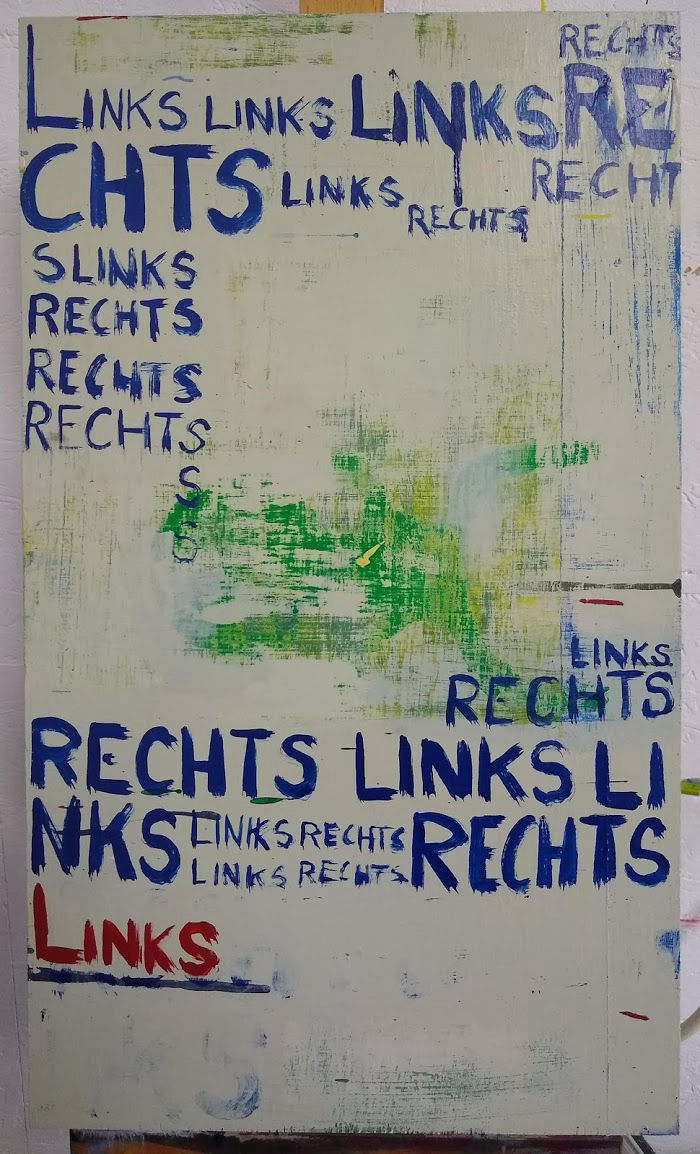 RECHTS
LINKS LINKS LINKS RE
CHTS LINKS RECHTS RECHT
SLINKS
RECHTS
RECHTS
RECHTS
S
S
LINKS
RECHTS
RECHTS LINKS LI
NKS LINKS RECHTS RECHTS
LINKS RECHTS
LINKS